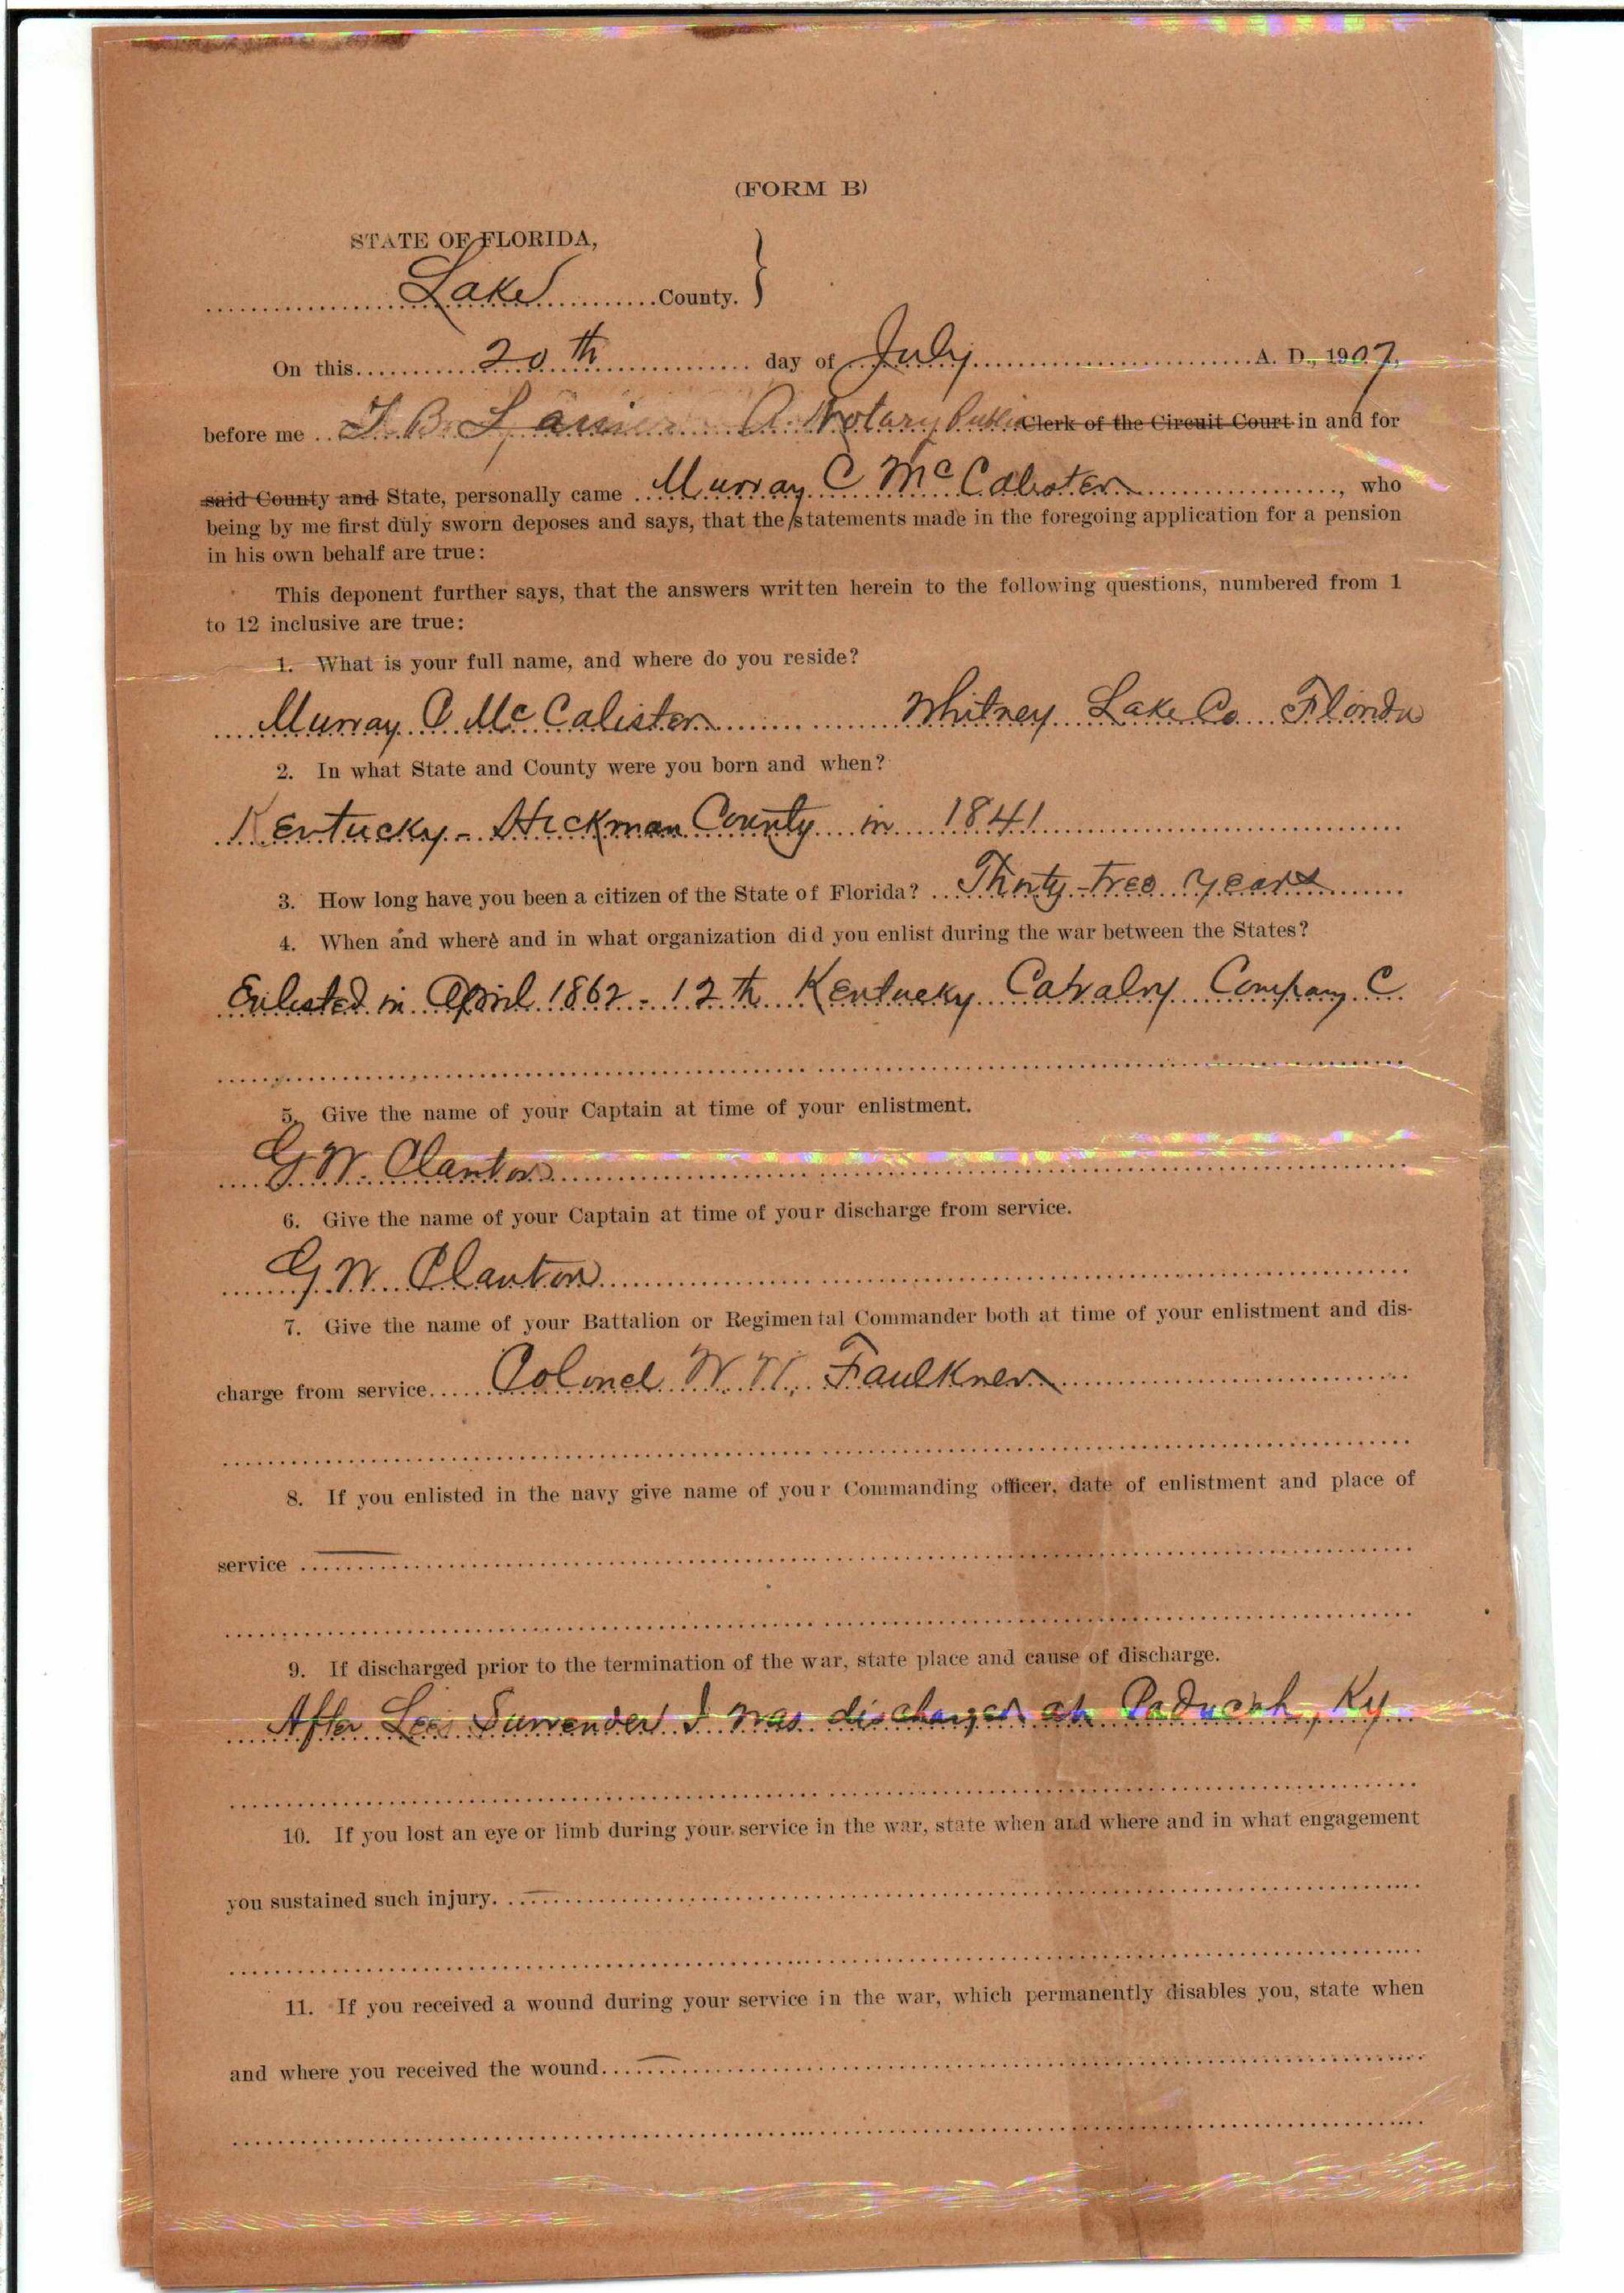 (FORM B)
STATE OF FLORIDA,
Lake County. }
On this 20th day of July A. D., 1907,
before me T. B. A Notary Public Clerk of the Circuit Court in and for
said County and State, personally came Murray C McCalister, who
being by me first duly sworn deposes and says, that the statements made in the foregoing application for a pension
in his own behalf are true:
This deponent further says, that the answers written herein to the following questions, numbered from 1
to 12 inclusive are true:
1. What is your full name, and where do you reside?
Murray C McCalister Whitney Lake Co Florida
2. In what State and County were you born and when?
Kentucky - Hickman County in 1841
3. How long have you been a citizen of the State of Florida? Thirty-tree years
4. When and where and in what organization did you enlist during the war between the States?
Enlisted in April 1862 - 12th Kentucky Calvalry Company C
5. Give the name of your Captain at time of your enlistment.
G. W. Clanton
6. Give the name of your Captain at time of your discharge from service.
G. W. Clanton
7. Give the name of your Battalion or Regimental Commander both at time of your enlistment and dis-
charge from service Colonel W. W. Faulkner
8. If you enlisted in the navy give name of your Commanding officer, date of enlistment and place of
service
9. If discharged prior to the termination of the war, state place and cause of discharge.
After Lees Surrender I was discharged at Paducah, Ky
10. If you lost an eye or limb during your service in the war, state when and where and in what engagement
you sustained such injury.
11. If you received a wound during your service in the war, which permanently disables you, state when
and where you received the wound